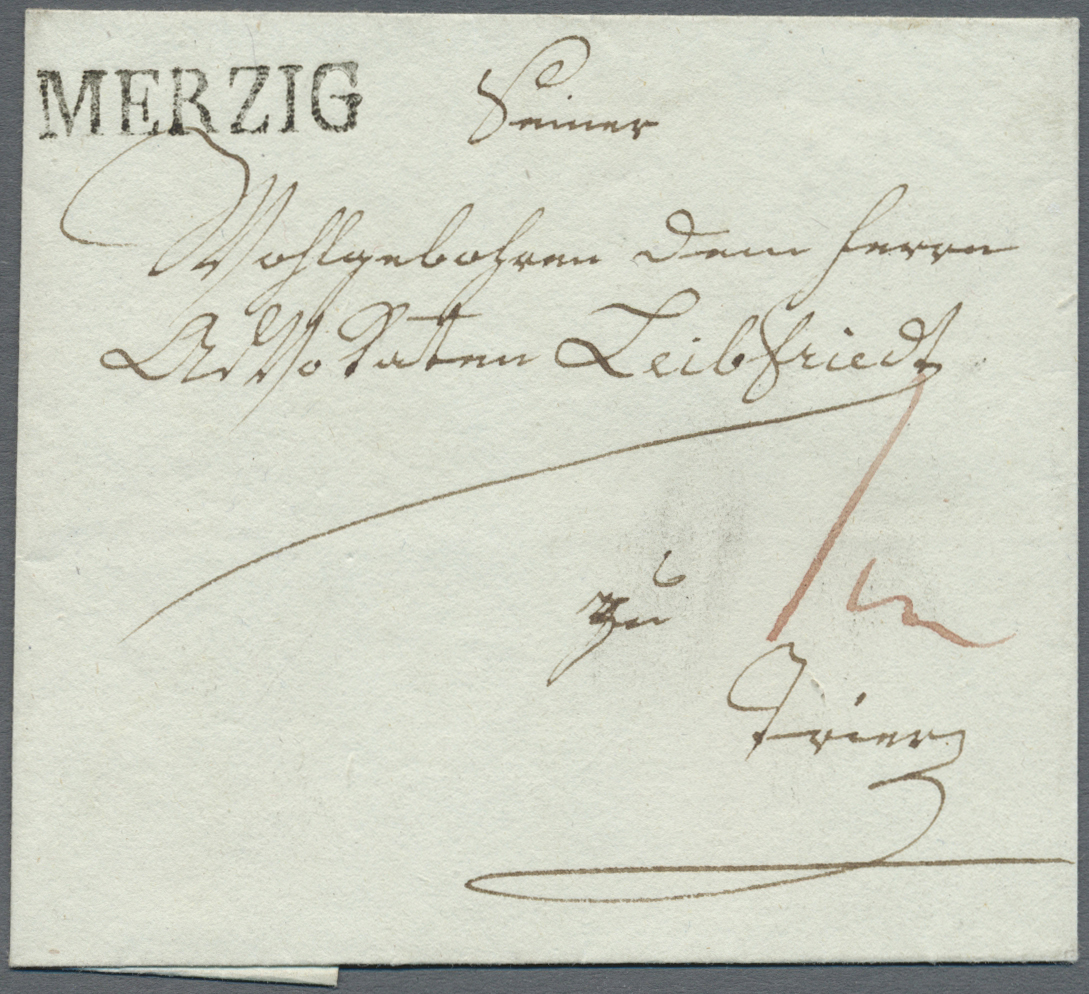 MERZIG
Seiner
Wohlgebohren dem Herrn
Advokaten Leibfriedt
zu
Trier